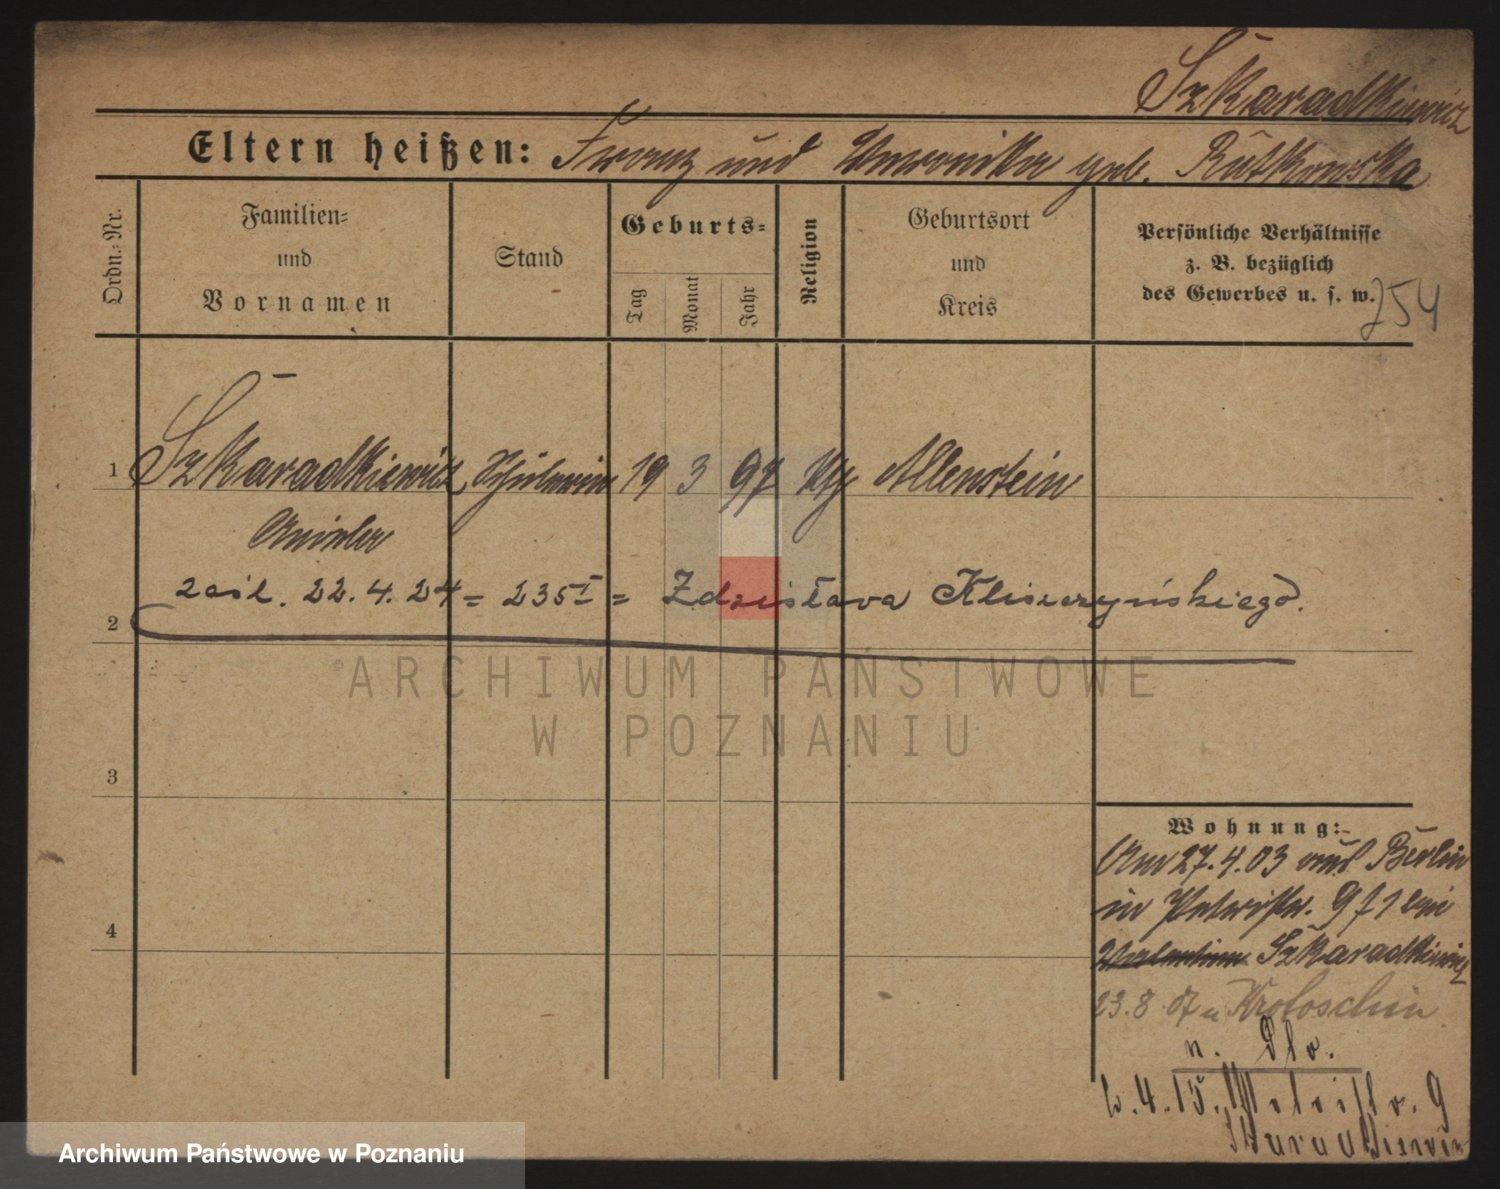 Szkaradkiewicz
Eltern heißen: Franz und Veronika geb. Rutkowska
Ordn.-Nr.
Familien-
und
Vornamen
Stand
Geburts-
Tag
Monat
Jahr
Religion
Geburtsort
und
Kreis
Persönliche Verhältnisse
z. B. bezüglich
des Gewerbes u. s. w.
254
1 Szkaradkiewicz Schülerin 19 3 97 Allenstein
zaśl. 22.4.24 = 235 I = Zdzisława Kliszczyńskiego.
2
ARCHIWUM PAŃSTWOWE
W POZNANIU
3
4
Wohnung:
Am 27.4.03 aus Berlin
in Petristr. 9 bei
Szkaradkiewicz
23.8.07 n Krotoschin
4.15. Petristr. 9
Skaradkiewicz
Archiwum Państwowe w Poznaniu